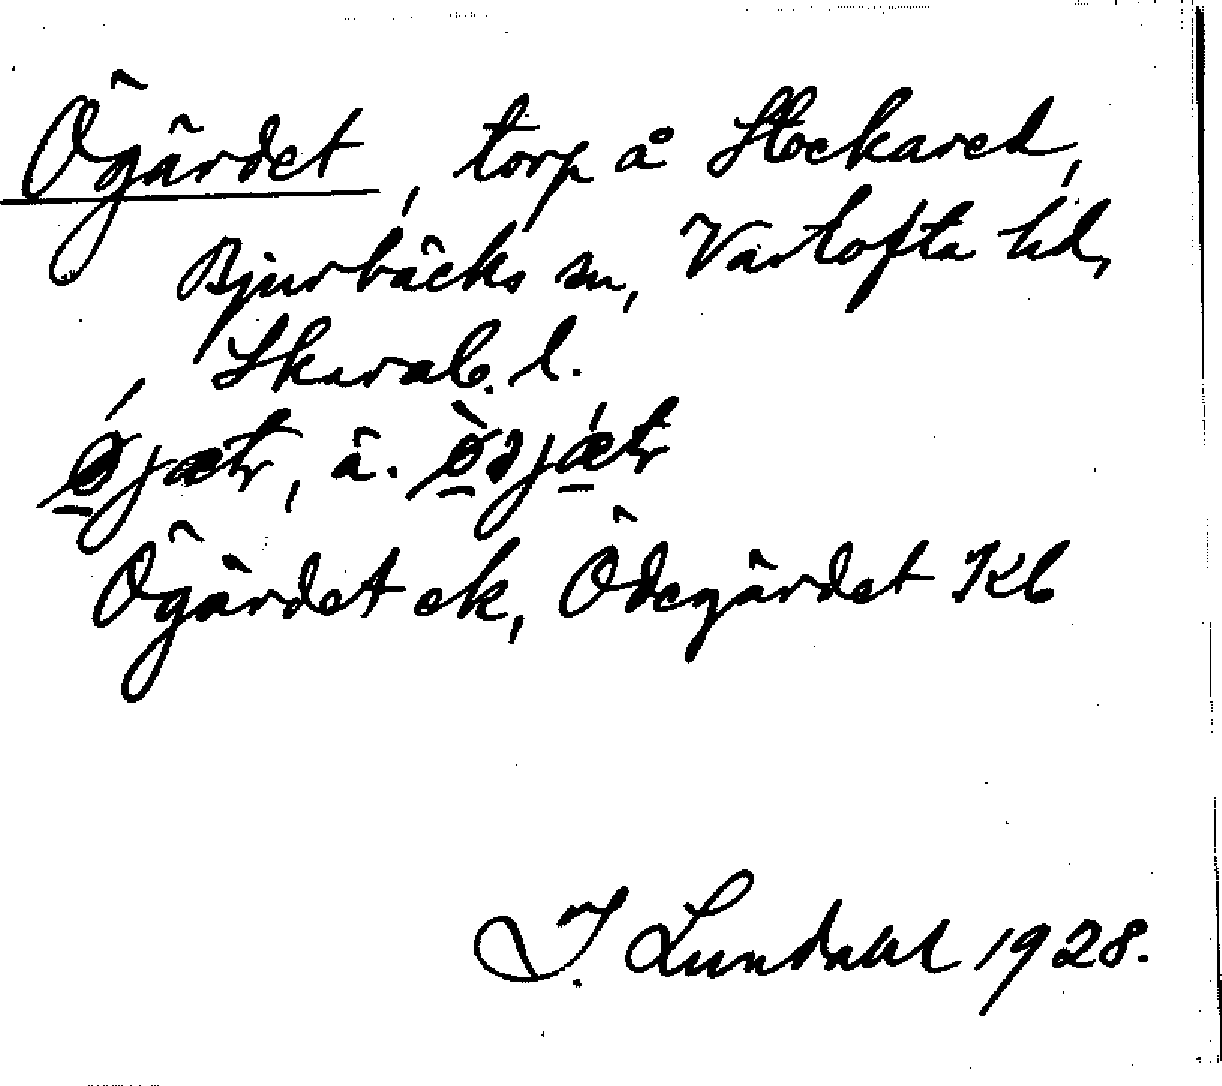 Ögärdet, torp å Stockared,
Bjurbäcks sn, Vartofta hd,
Skarab. l.
ǿjætr, ä. ø̀ᴣjætr
Ögärdet ek, Ödegärdet Kb
I. Lundahl 1928.